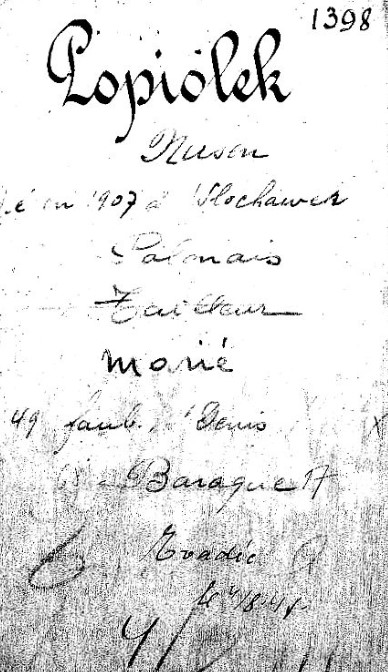 1398
Popiólek
Nusen
né en 1907 à Wlochawek
Polonais
Tailleur
marié
49 faub. St Denis
Baraque 17
Evadé
le